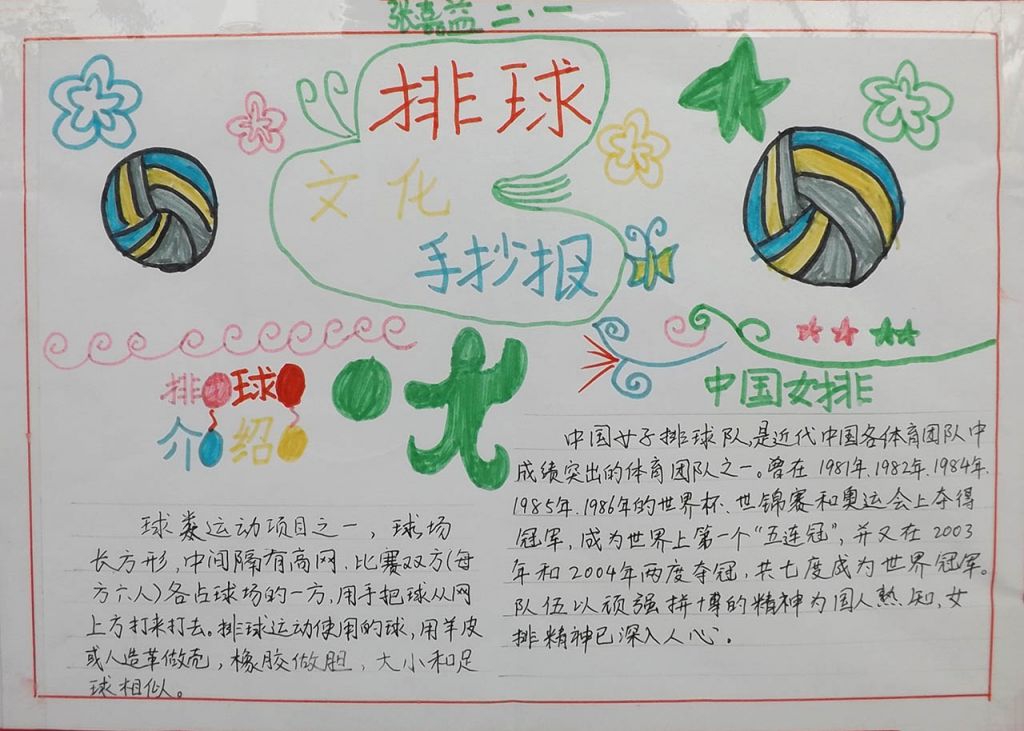 张嘉益 二、一
排球
文化
手抄报
排球
介绍
球类运动项目之一，球场
长方形，中间隔有高网，比赛双方(每
方六人)各占球场的一方，用手把球从网
上方打来打去。排球运动使用的球，用羊皮
或人造革做壳，橡胶做胆，大小和足
球相似。
中国女排
中国女子排球队，是近代中国各体育团队中
成绩突出的体育团队之一。曾在1981年、1982年、1984年、
1985年、1986年的世界杯、世锦赛和奥运会上夺得
冠军，成为世界上第一个“五连冠”，并又在2003
年和2004年两度夺冠，共七度成为世界冠军。
队伍以顽强拼博的精神为国人熟知，女
排精神已深入人心。